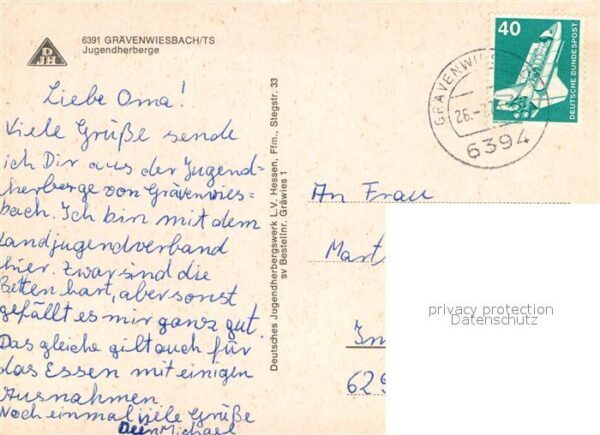 DJH
6391 GRÄVENWIESBACH/TS
Jugendherberge
Liebe Oma!
Viele Grüße sende
ich Dir aus der Jugend-
herberge von Grävenwies-
bach. Ich bin mit dem
Landjugendverband
hier. Zwar sind die
Betten hart, aber sonst
gefällt es mir ganz gut.
Das gleiche gilt auch für
das Essen mit einigen
Ausnahmen
Noch einmal viele Grüße
Dein Michael
Deutsches Jugendherbergswerk L.V. Hessen, Ffm., Stegstr. 33
sv Bestellnr. Gräwies 1
40
DEUTSCHE BUNDESPOST
GRÄVENWIES
26.-2
6394
An Frau
Mart
629
privacy protection
Datenschutz